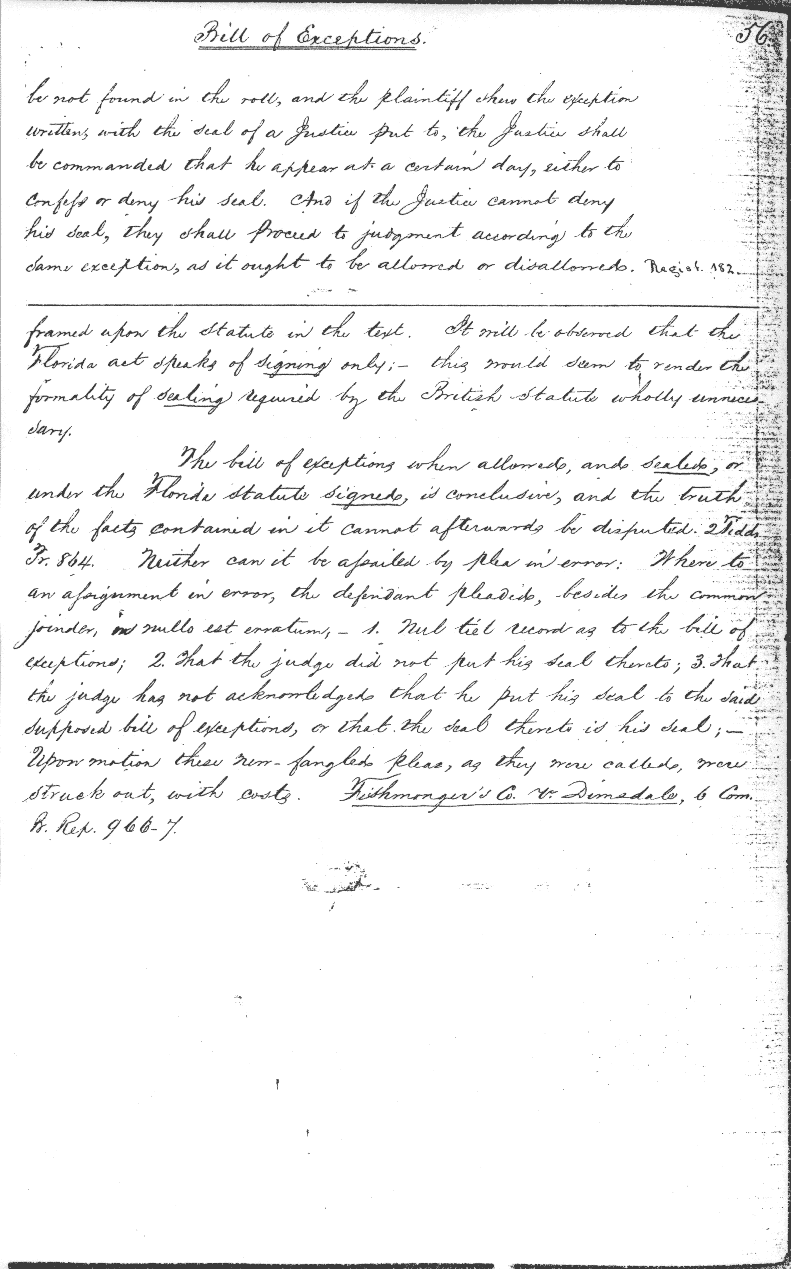 Bill of Exceptions.
56.
be not found in the roll, and the plaintiff shew the exception
written, with the seal of a Justice put to, the Justice shall
be commanded that he appear at a certain day, either to
confess or deny his seal. And if the Justice cannot deny
his seal, they shall proceed to judgment according to the
same exception, as it ought to be allowed or disallowed. Regist. 182.
framed upon the Statute in the text. It will be observed that the
Florida act speaks of signing only; – this would seem to render the
formality of sealing required by the British Statute wholly unneces-
sary.
The bill of exceptions when allowed, and sealed, or
under the Florida Statute signed, is conclusive, and the truth
of the facts contained in it cannot afterwards be disputed. 2 Tidds
Pr. 864. Neither can it be assailed by plea in error: Where to
an assignment in error, the defendant pleaded, besides the common
joinder, in nullo est erratum, – 1. Nul tiel record as to the bill of
exceptions; 2. That the judge did not put his seal thereto; 3. That
the judge has not acknowledged that he put his seal to the said
supposed bill of exceptions, or that the seal thereto is his seal; –
Upon motion these new-fangled pleas, as they were called, were
struck out, with costs. Fishmonger's Co. v. Dimsdale, 6 Com.
B. Rep. 966-7.